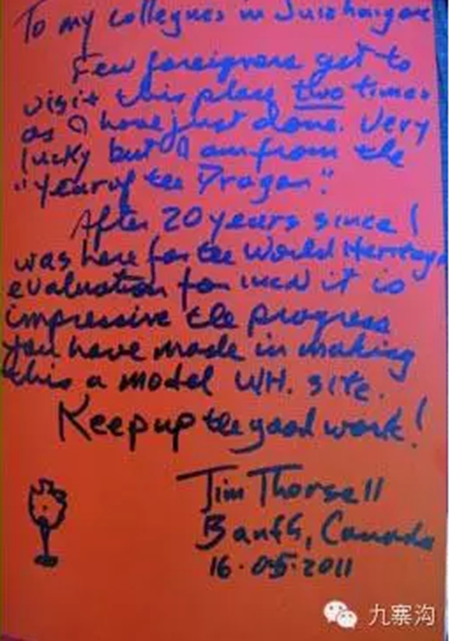 To my collegues in Juizhaigou
Few foreigners get to
visit this place two times
as I have just done. Very
lucky but I am from the
"Year of the Dragon".
After 20 years since I
was here for the World Herritage
evaluation for iucn it is
impressive the progress
you have made in making
this a model WH. site.
Keep up the good work!
Jim Thorsell
Banff, Canada
16.05.2011
九寨沟